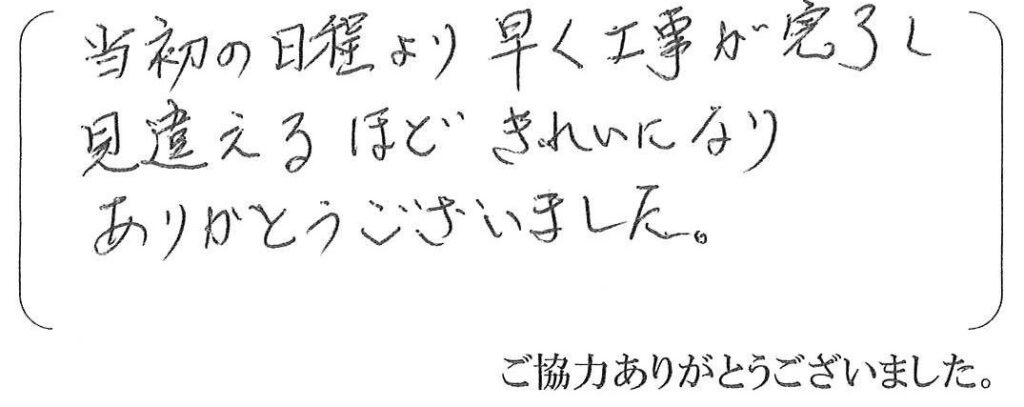 当初の日程より早く工事が完了し
見違えるほどきれいになり
ありがとうございました。
ご協力ありがとうございました。